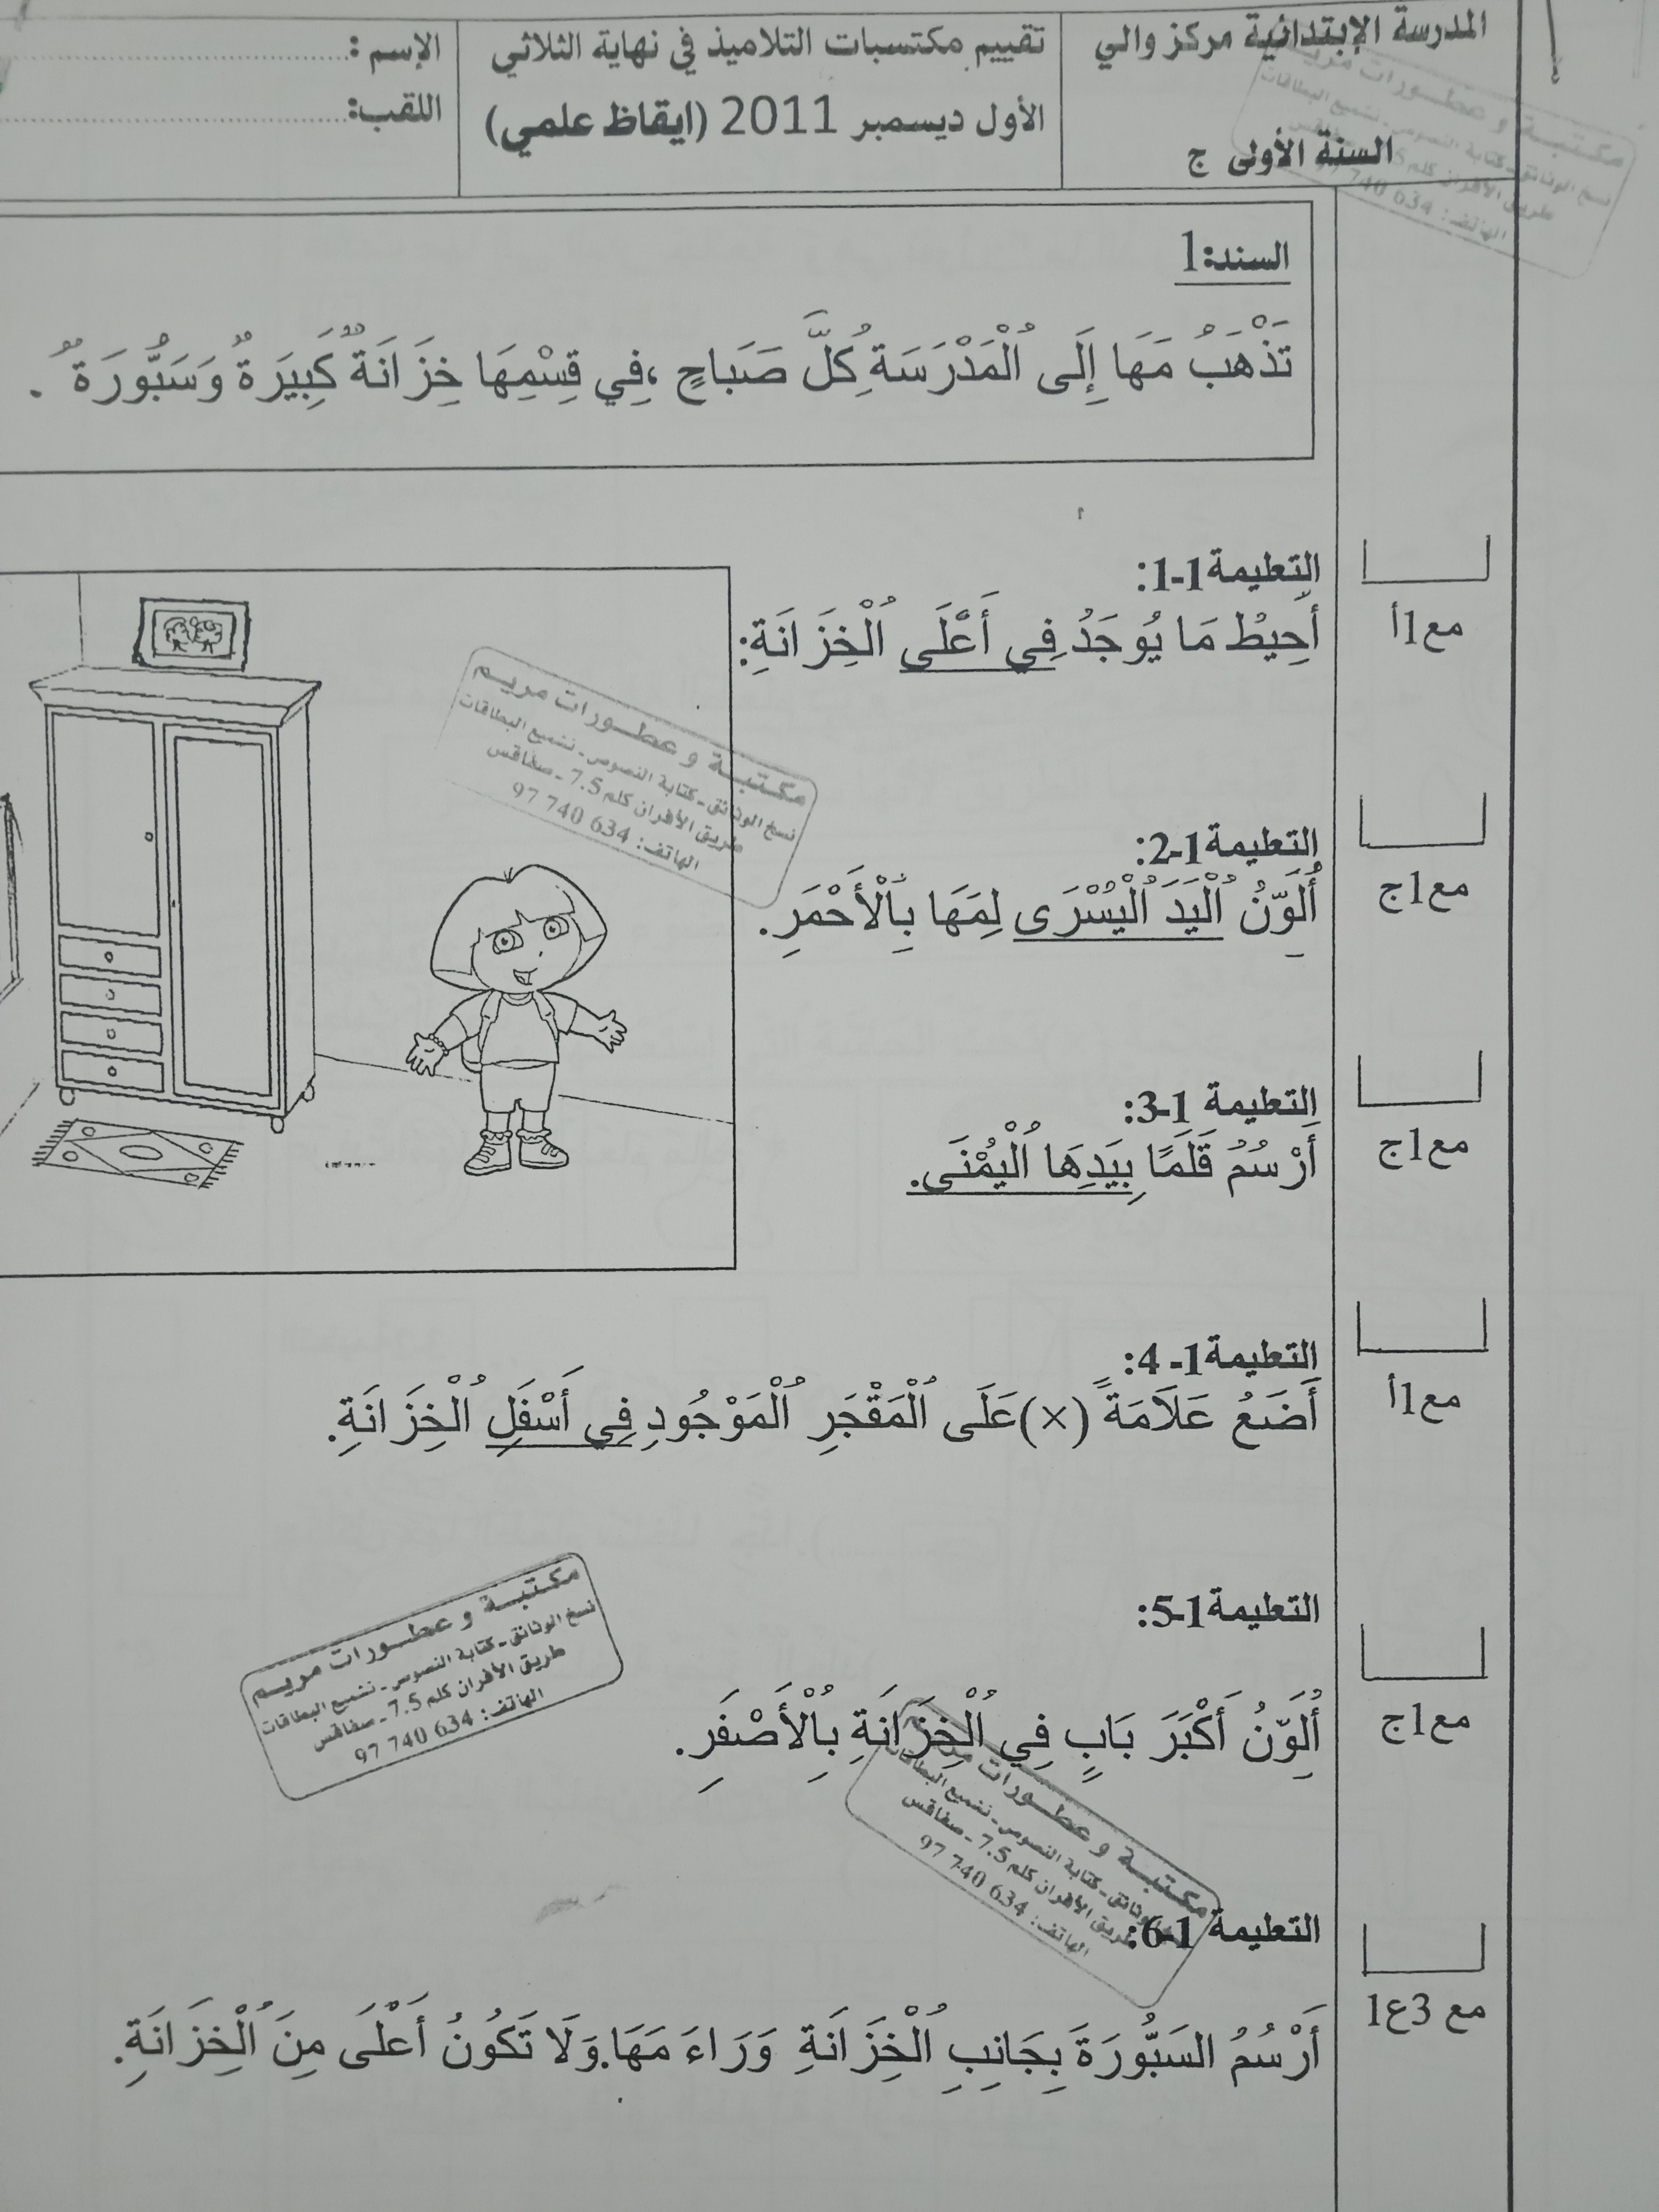 المدرسة الإبتدائية مركز والي
السنة الأولى ج
تقييم مكتسبات التلاميذ في نهاية الثلاثي
الأول ديسمبر 2011 (ايقاظ علمي)
الإسم :
اللقب:
السند:1
تَذْهَبُ مَهَا إِلَى ٱلْمَدْرَسَةِ كُلَّ صَبَاحٍ ،فِي قِسْمِهَا خِزَانَةٌ كَبِيرَةٌ وَسَبُّورَةٌ .
التعليمة1-1:
أُحِيطُ مَا يُوجَدُ فِي أَعْلَى ٱلْخِزَانَةِ:
مع1أ
التعليمة1-2:
أُلَوِّنُ ٱلْيَدَ ٱلْيُسْرَى لِمَهَا بِٱلْأَحْمَرِ.
مع1ج
التعليمة 1-3:
أَرْسُمُ قَلَمًا بِيَدِهَا ٱلْيُمْنَى.
مع1ج
التعليمة1- 4:
أَضَعُ عَلاَمَةً (×)عَلَى ٱلْمَقْجَرِ ٱلْمَوْجُودِ فِي أَسْفَلِ ٱلْخِزَانَةِ.
مع1أ
التعليمة1-5:
أُلَوِّنُ أَكْبَرَ بَابٍ فِي ٱلْخِزَانَةِ بِٱلْأَصْفَرِ.
مع1ج
التعليمة 1-6:
أَرْسُمُ السَبُّورَةَ بِجَانِبِ ٱلْخِزَانَةِ وَرَاءَ مَهَا.وَلَا تَكُونُ أَعْلَى مِنَ ٱلْخِزَانَةِ.
مع 3ع1
مكتبة و عطورات مريم
نسخ الوثائق - كتابة النصوص - تشميع البطاقات
طريق الأفران كلم 7.5 - صفاقس
الهاتف: 634 740 97
مكتبة و عطورات مريم
نسخ الوثائق - كتابة النصوص - تشميع البطاقات
طريق الأفران كلم 7.5 - صفاقس
الهاتف: 634 740 97
مكتبة و عطورات
كتابة النصوص - تشميع البطاقات
طريق الأفران كلم 7.5 - صفاقس
الهاتف: 634 740 97
مكتبة و عطورات مريم
نسخ الوثائق - كتابة النصوص - تشميع البطاقات
طريق الأفران كلم
الهاتف: 634 740 97